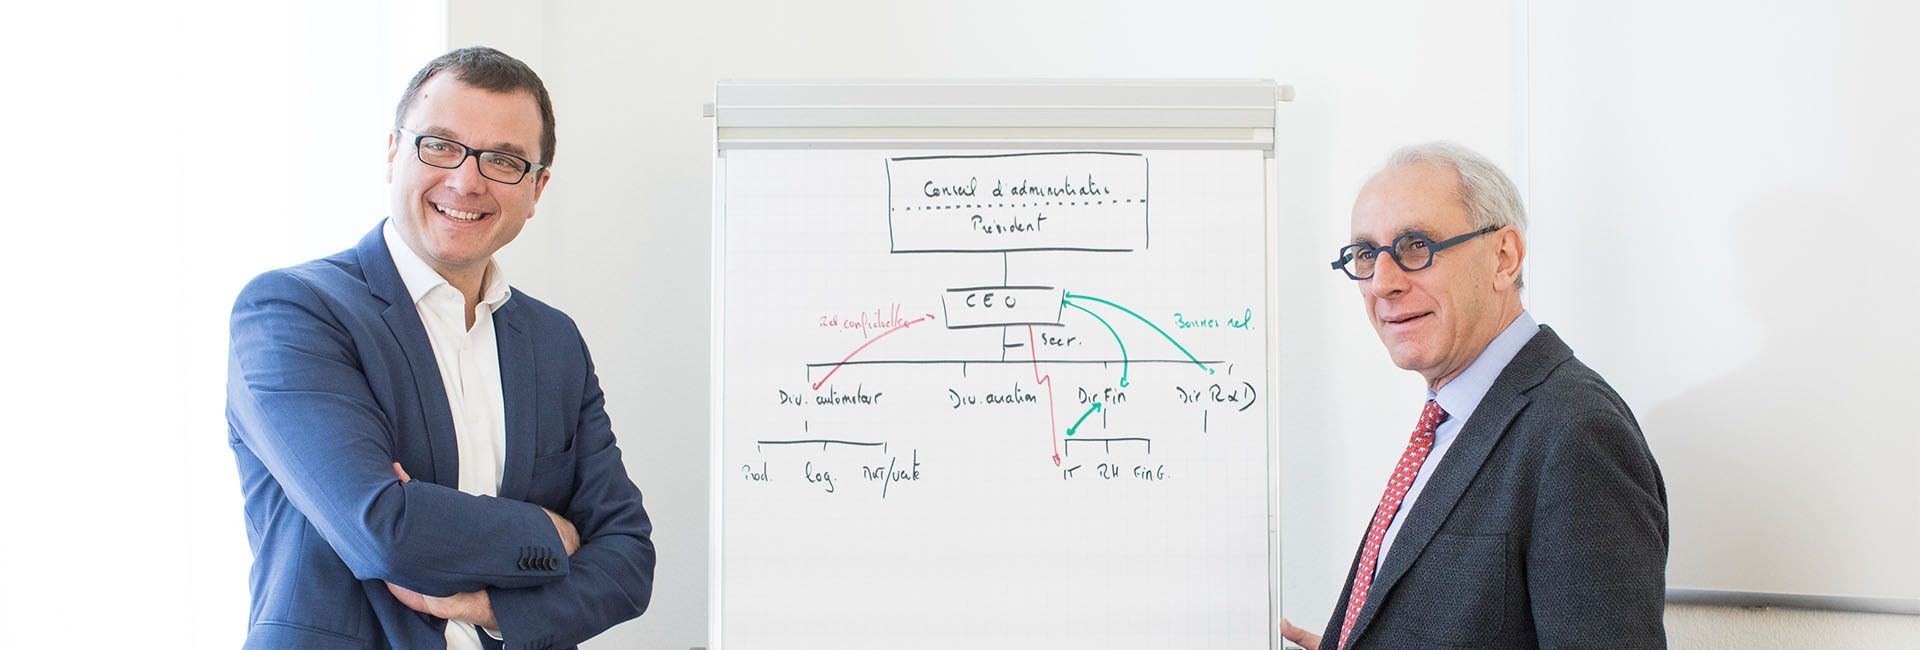 Conseil d'administratio
Président
CEO
Rel. conflictuelle
Bonnes rel.
Secr.
Div. automoteur
Div. aviation
Dir Fin
Dir R&D
Prod.
log.
MKT/vente
IT
RH
FinG.